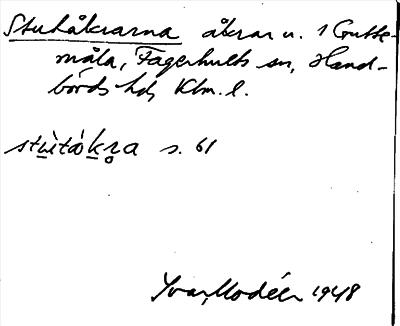 Stutåkrarna åkrar u. 1 Gutte-
måla, Fagerhults sn, Hand-
börds hd, Klm. l.
stu̱̇tåk̠r̥a s. 61
Ivar Modéer 1948